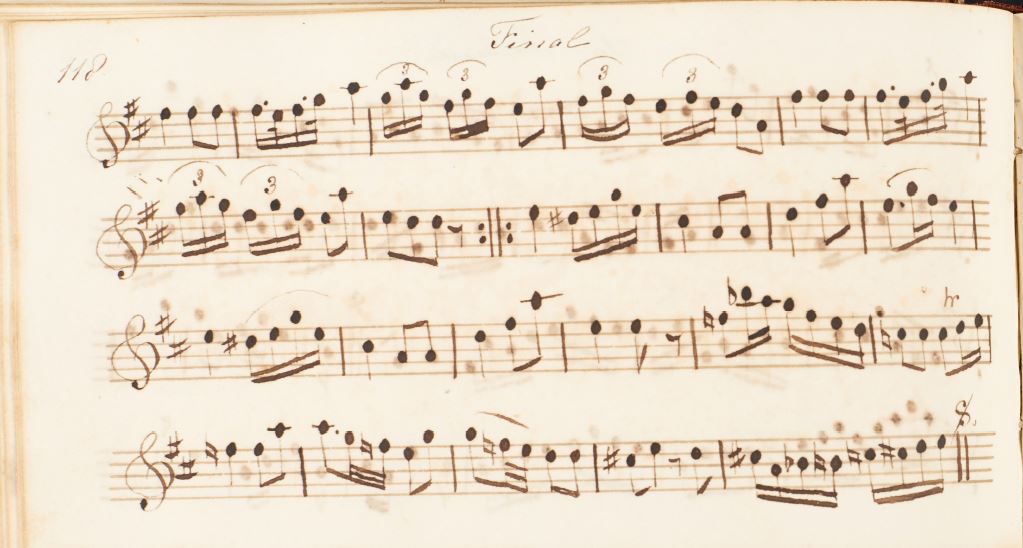 Final
118
3 3 3 3
3 3
tr